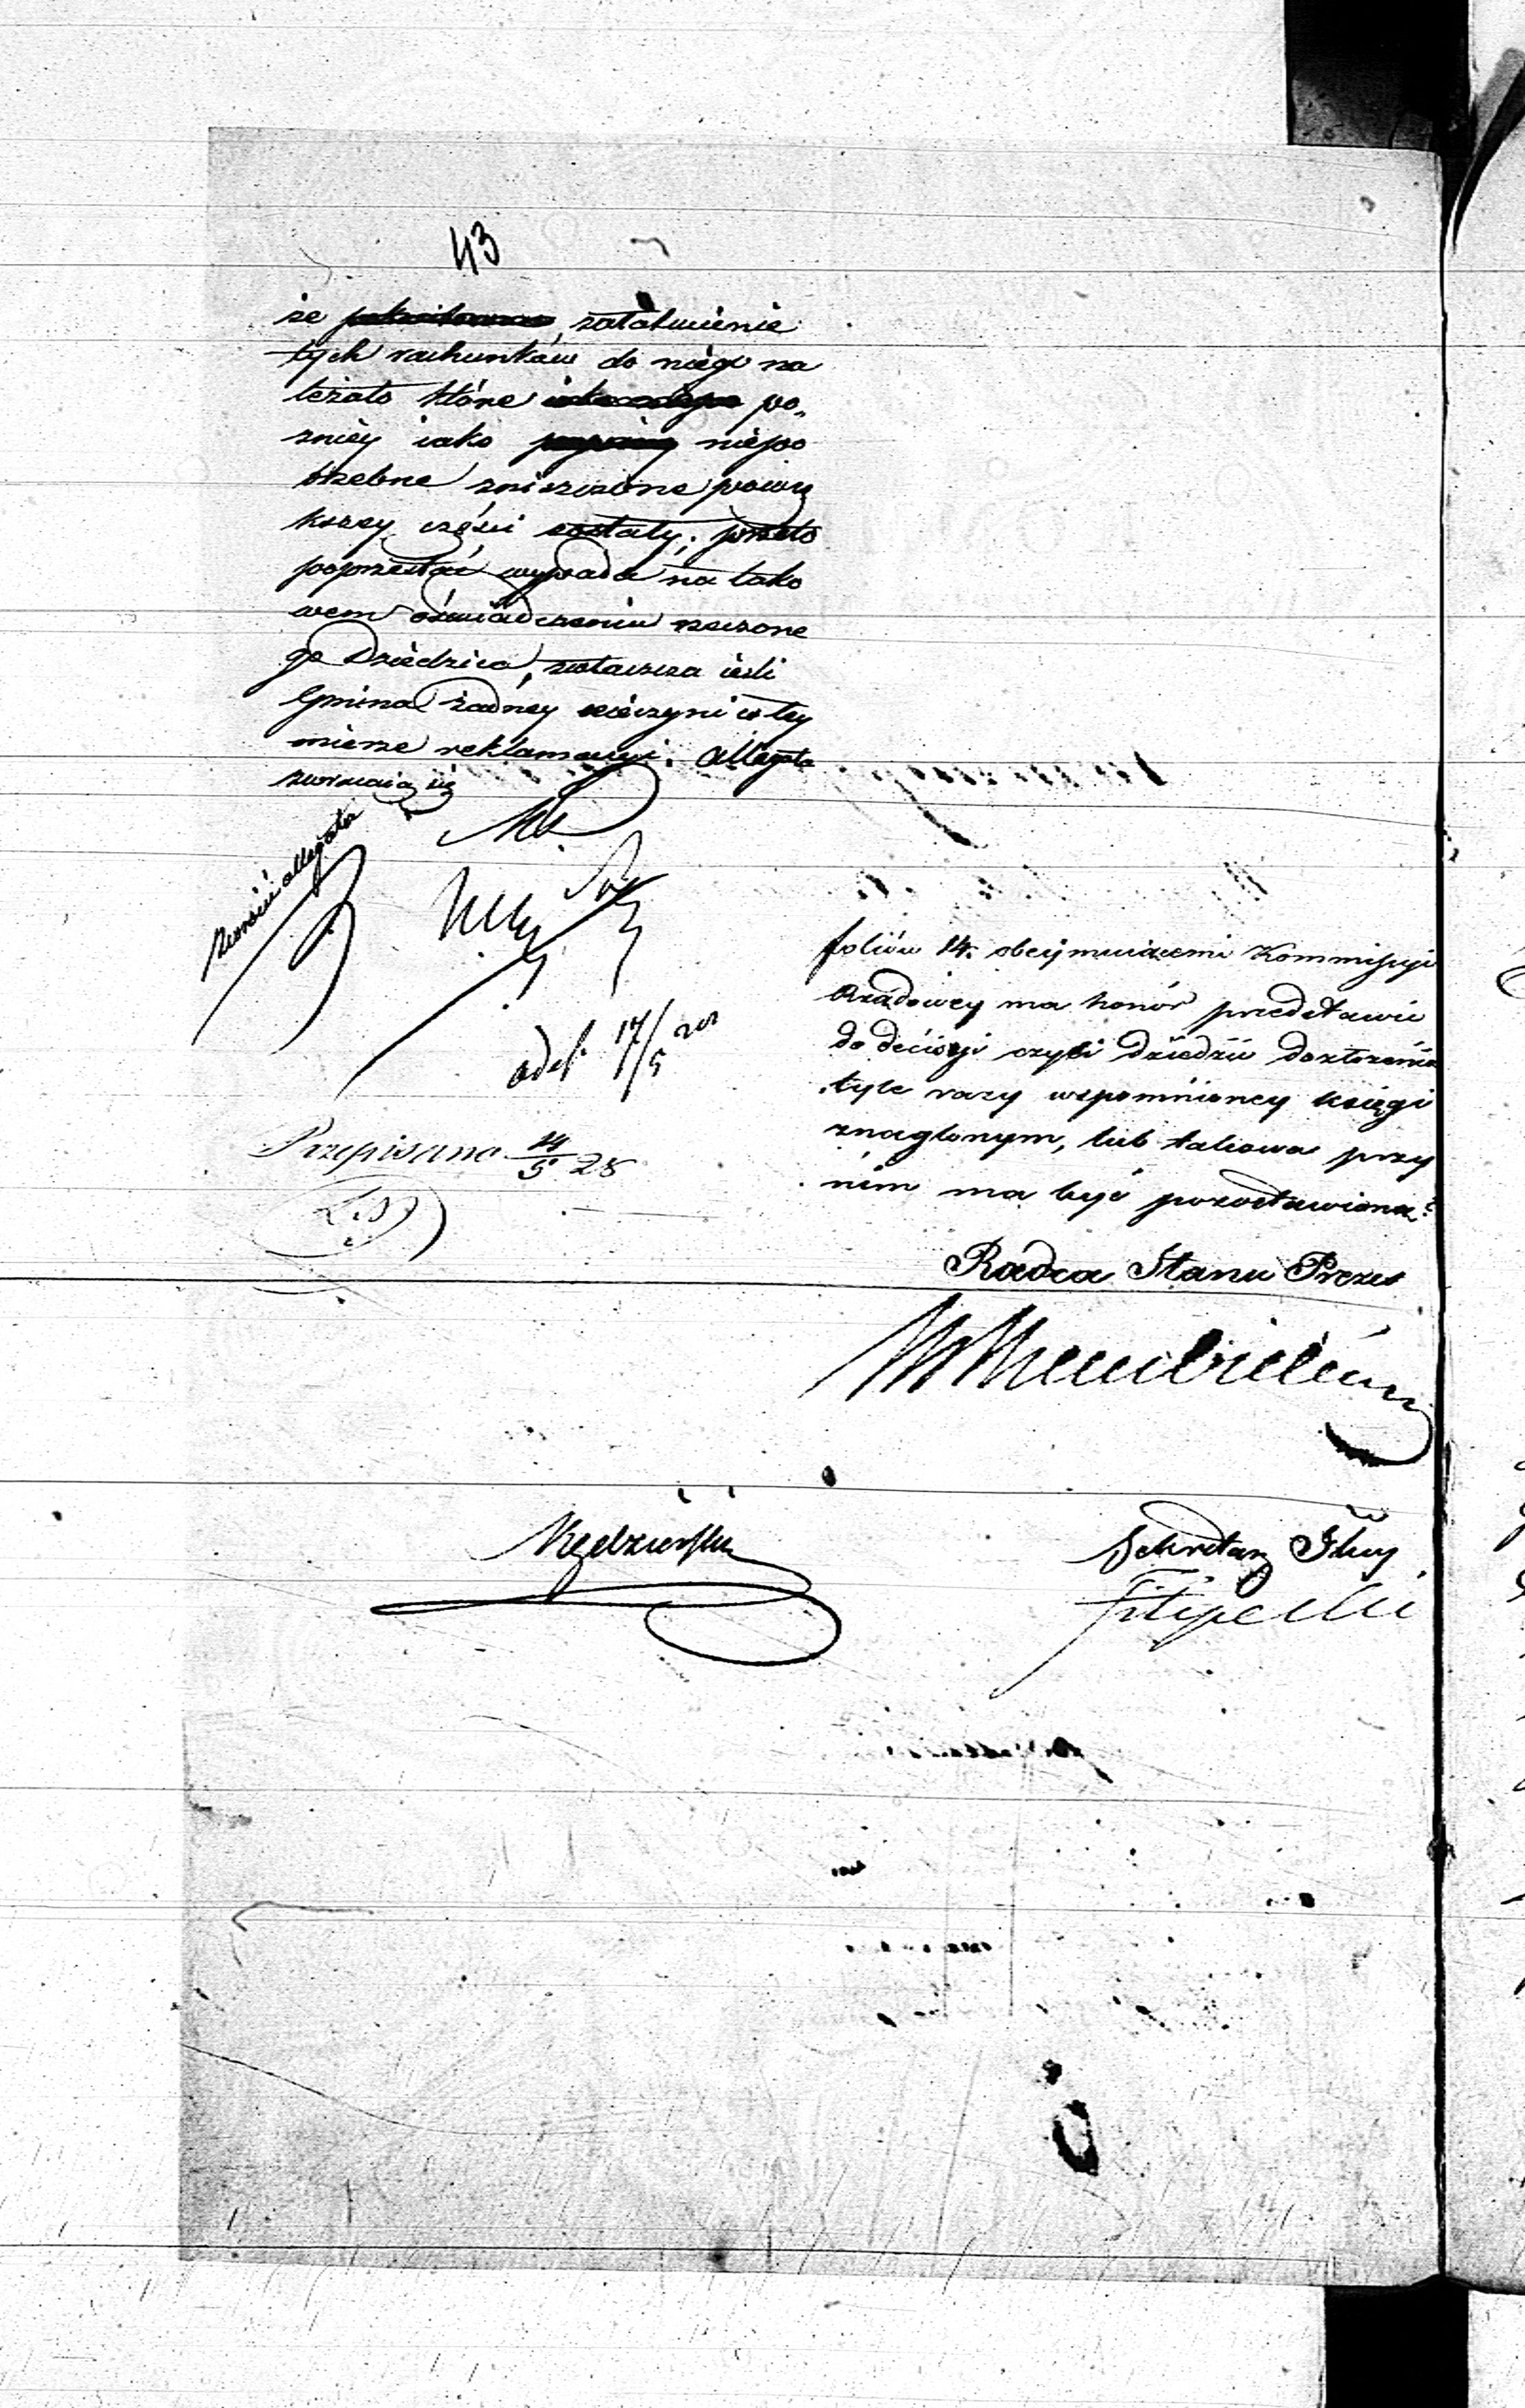 43
że załatwienie
tych rachunków do niego na
leżało które po„
zniey iako niepo
trzebne zniszczone powię
kszey części zostały; przeto
poprzestać wypada na tako
wem oświadczeniu rzeczone
go Dziedzica, zwłaszcza ieśli
Gmina żadney nieczyni w tey
mierze reklamacyi. Allegata
zwracaią się
zwrócić allegata
odel. 17/5
Przepisano 14/5 28
foliów 14. obeymuiącemi Kommissyi
Rządowey ma honór przedstawić
do decizyi czyli dziedzic do złożenia
tyle razy wspomnioney księgi
znaglonym, lub takowa przy
nim ma być pozostawiona?
Radca Stanu Prezes
Sekretarz Jlny
Filipecki